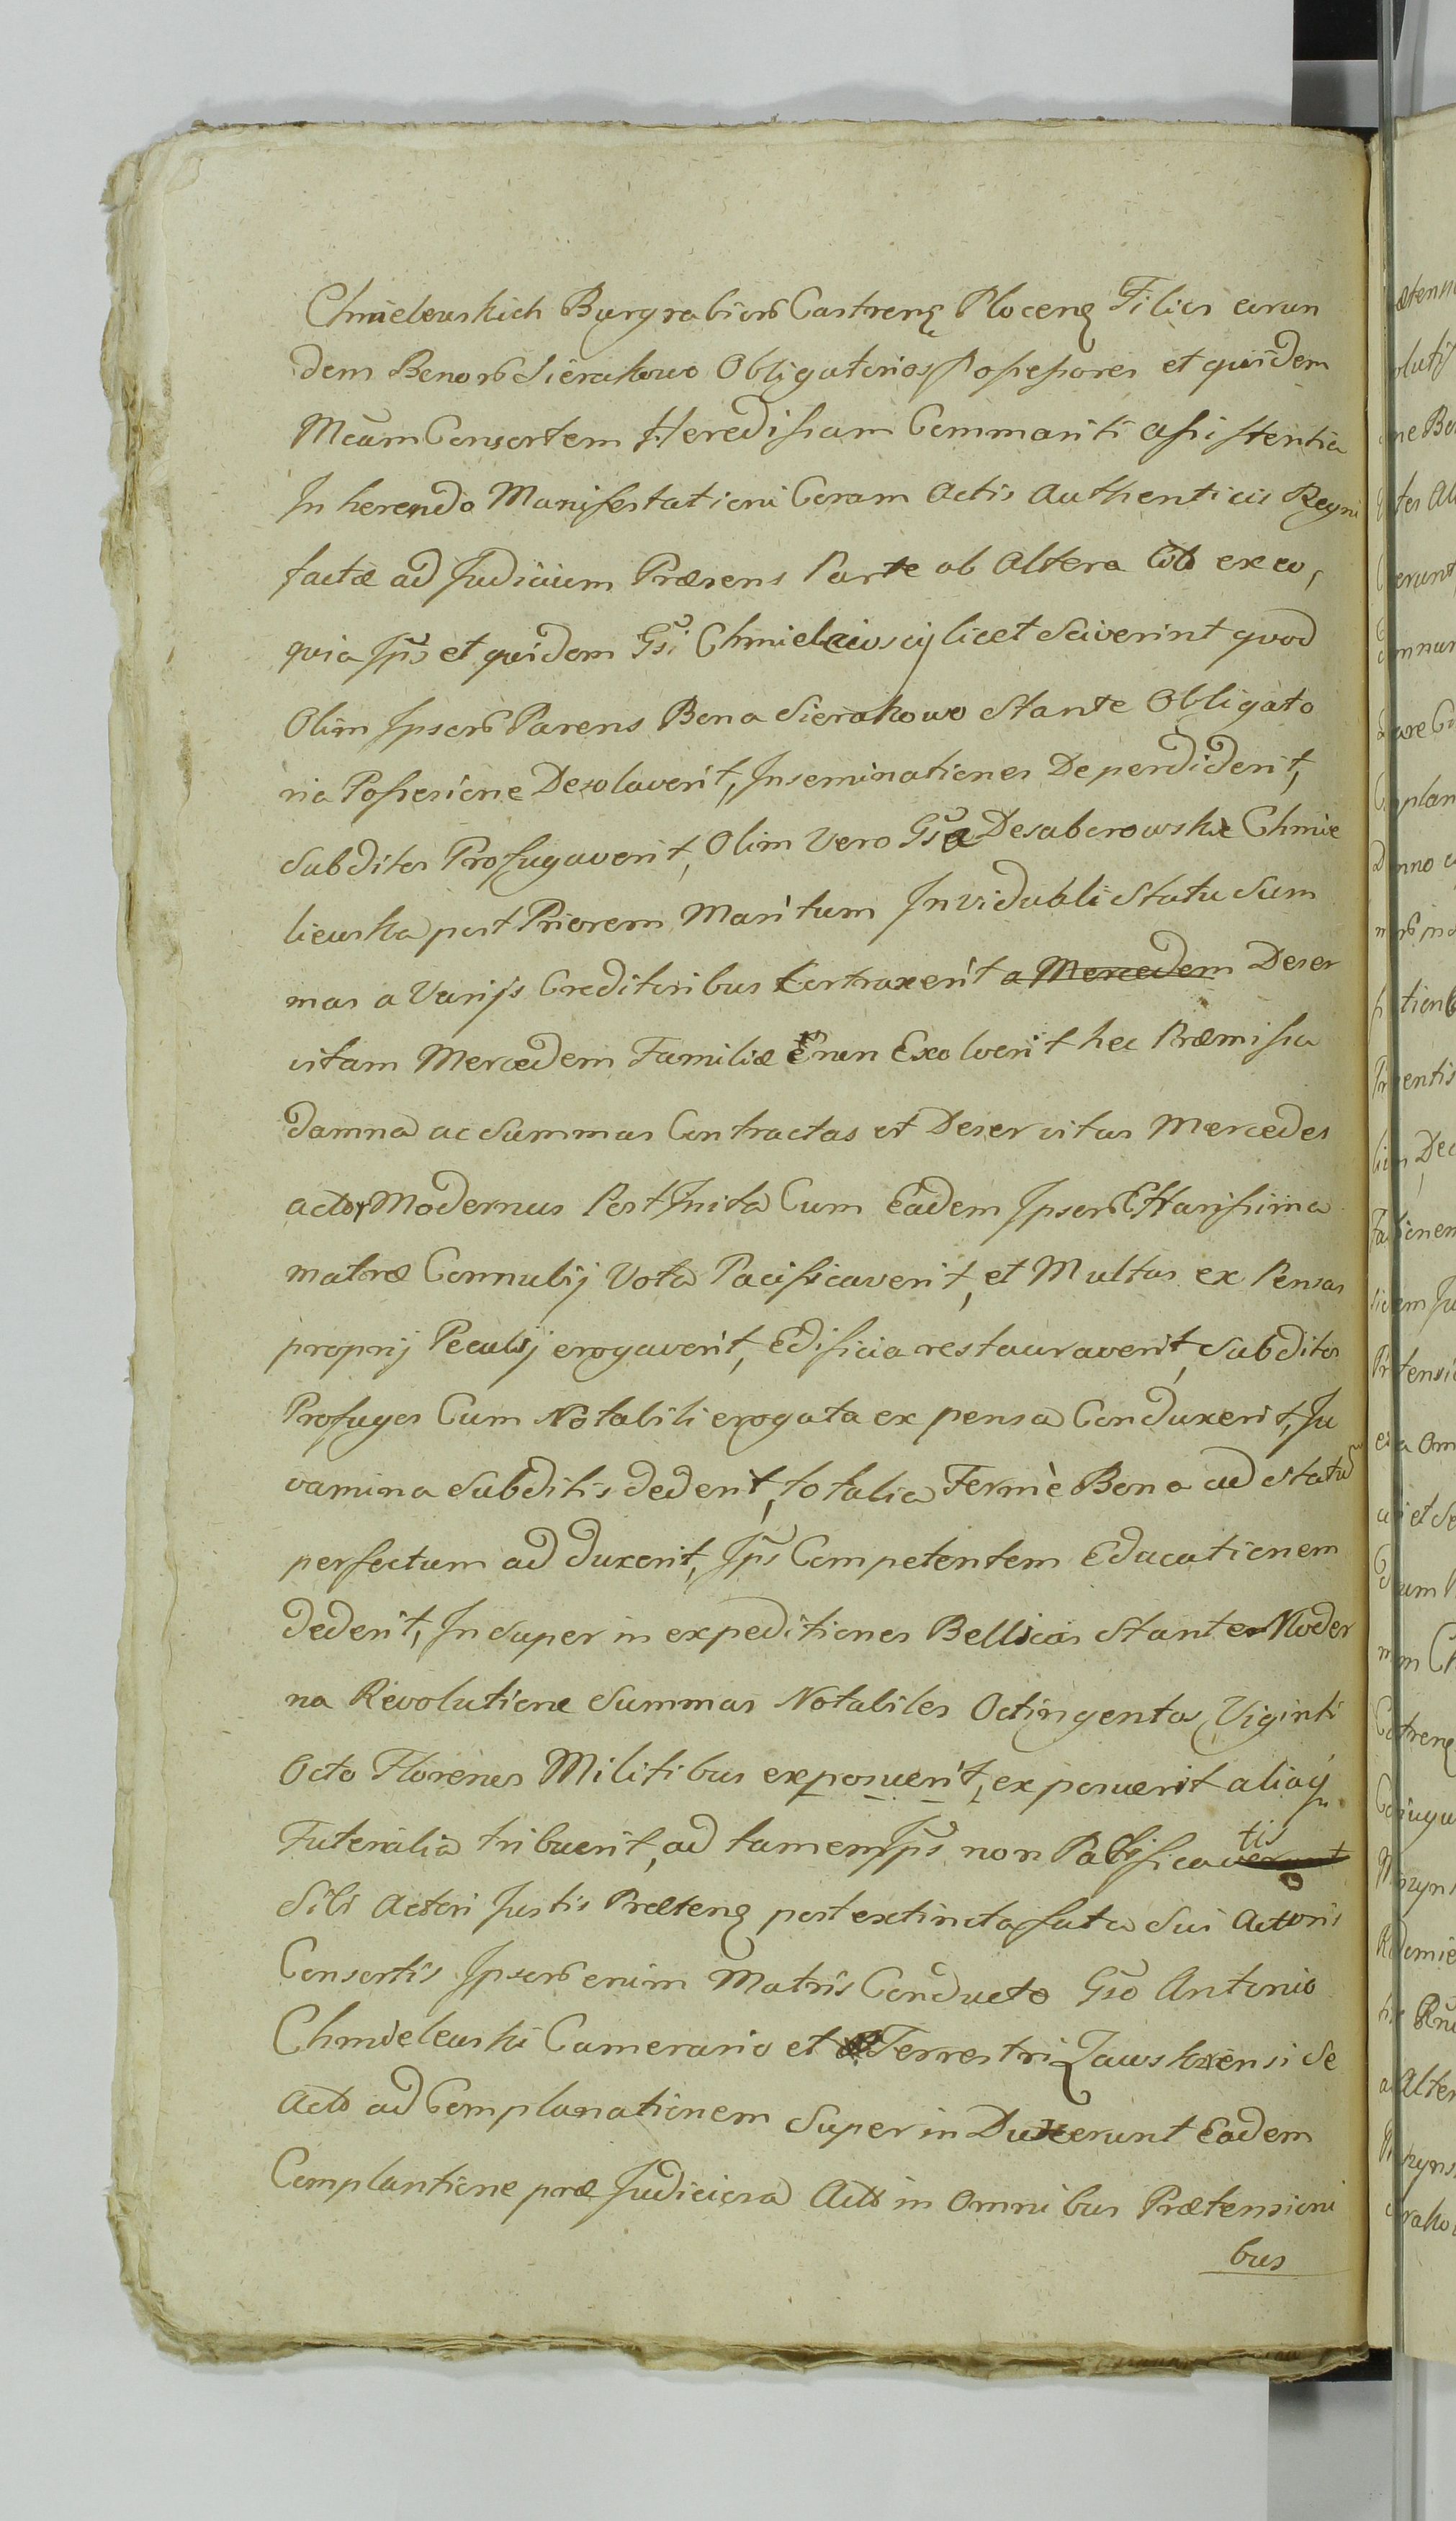 Chmielewskich Burgrabior Castrens Plocens Filios eorun
dem Benor Sierakowo Obligatorios Possessores et quidem
Mcam Consortem Heredissam Commariti assistentia
In herendo Manifestationi Coram Actis Authenticis Regni
factæ ad Judicium Præsens Parte ab Altera Cito ex eo,
quia Ipŝ et quidem Gsi Chmielewscij licet Sciverint quod
Olim Ipsor Parens Bona Sierakowo Stante Obligato
ria Possesione Desolaverit, Inseminationes Deperdiderit,
Subditos Profugaverit, Olim Vero Gsa Desaberowska Chmie
liewska post Priorem Maritum In Vidubli Statu Sum
mas a Varijs Creditoribus Contraxerit a Mercedem Deser
vitam Mercedem Familiæ non Exolverit hec Præmissa
damna ac Summas Contractas et Deservitas Mercedes
actor Modernus Post Inita Cum Eadem Ipsor Charissima
matre Connubij Vota Pacificaverit, et Multas ex Pensas
proprij Peculij erogaverit, Edificia restauraverit, Subditos
Profugos Cum Notabili erogata ex pensa Conduxerit, Ju
vamina Subditis dederit, totalia Fermè Bona ad Statũ
perfectum ad duxerit, Ipŝ Competentem Educationem
dederit, In Super in expeditiones Bellicas Stante Moder
na Revolutione Summas Notabiles Octingentos Viginti
Octo Florenos Militibus exposuerit, exposuerit aliaq
Futeralia tribuerit, ad tamen Ipŝ non Pacificatis
Sibi Actori Justis Prætens post extincta fata Sui Actoris
Consortis Ipsor enim Matris Conducto Gso Antonio
Chmielewski Camerario et Terrestri Zawskrensi Se
Acto ad Complanationem Super in Duxerunt Eadem
Complantione præ Judiciosa Acto in Omnibus Prætensioni
bus